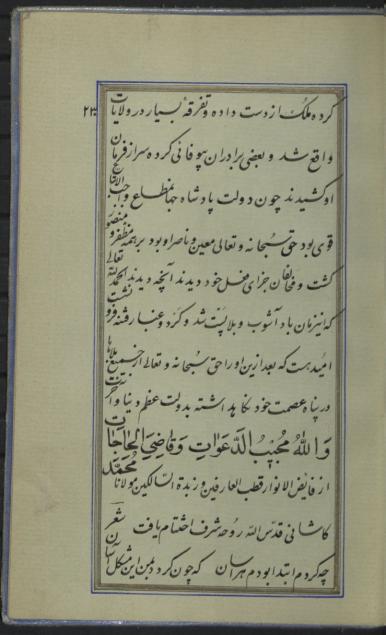 ۲۳
کرده ملک از دست داده و تفرقهٔ بسیار در ولایات
واقع شد و بعضی برادران بیوفائی کرده سر از فرمان
او کشیدند چون دولت پادشاه جهانمطاع واجب الاتباع
قوی بود حق سبحانه و تعالی معین و ناصر او بود بر همه مظفر و منصور
کشت و مخالفان جزای فعل خود دیدند آنچه دیدند الحمدلله تعالی
که این زمان باد آشوب و بلا پست شد و کرد و غبار فتنه فرو نشست
امیدست که بعد ازین او را حق سبحانه و تعالی از جمیع بلاها
در پناه عصمت خود نکاهداشته بدولت عظم دنیا و آخرت
وَاللهُ مُجیبُ الدَّعَواتِ وَقاضِیَ الحاجاتِ
از فایض الانوار قطب العارفین و زبدة السالکین مولانا محمد
کاشانی قدس الله روحه شرف اختتام یافت شعر
چه کردم ابتدا بودم هراسان که چون کردد بمن این مشکل آسان